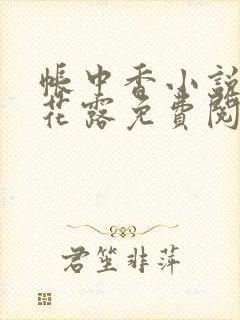 帐中香小説
花露免費閱
君笙非萍